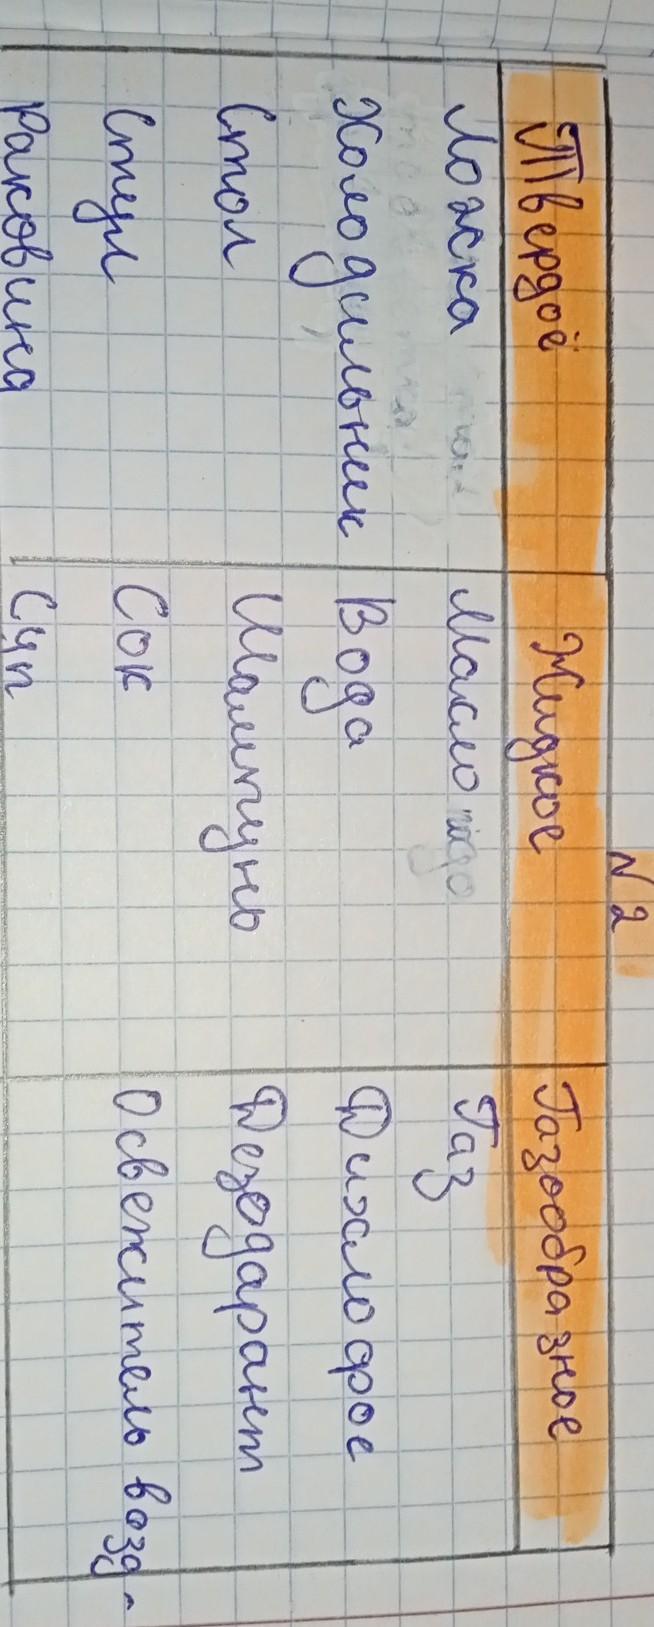 N 2
Твердое Жидкое Газообразное
Ложка Масло Газ
Холодильник Вода
Стол Шампунь Дезодарант
Стул Сок Освежитель возд-
Раковина Суп